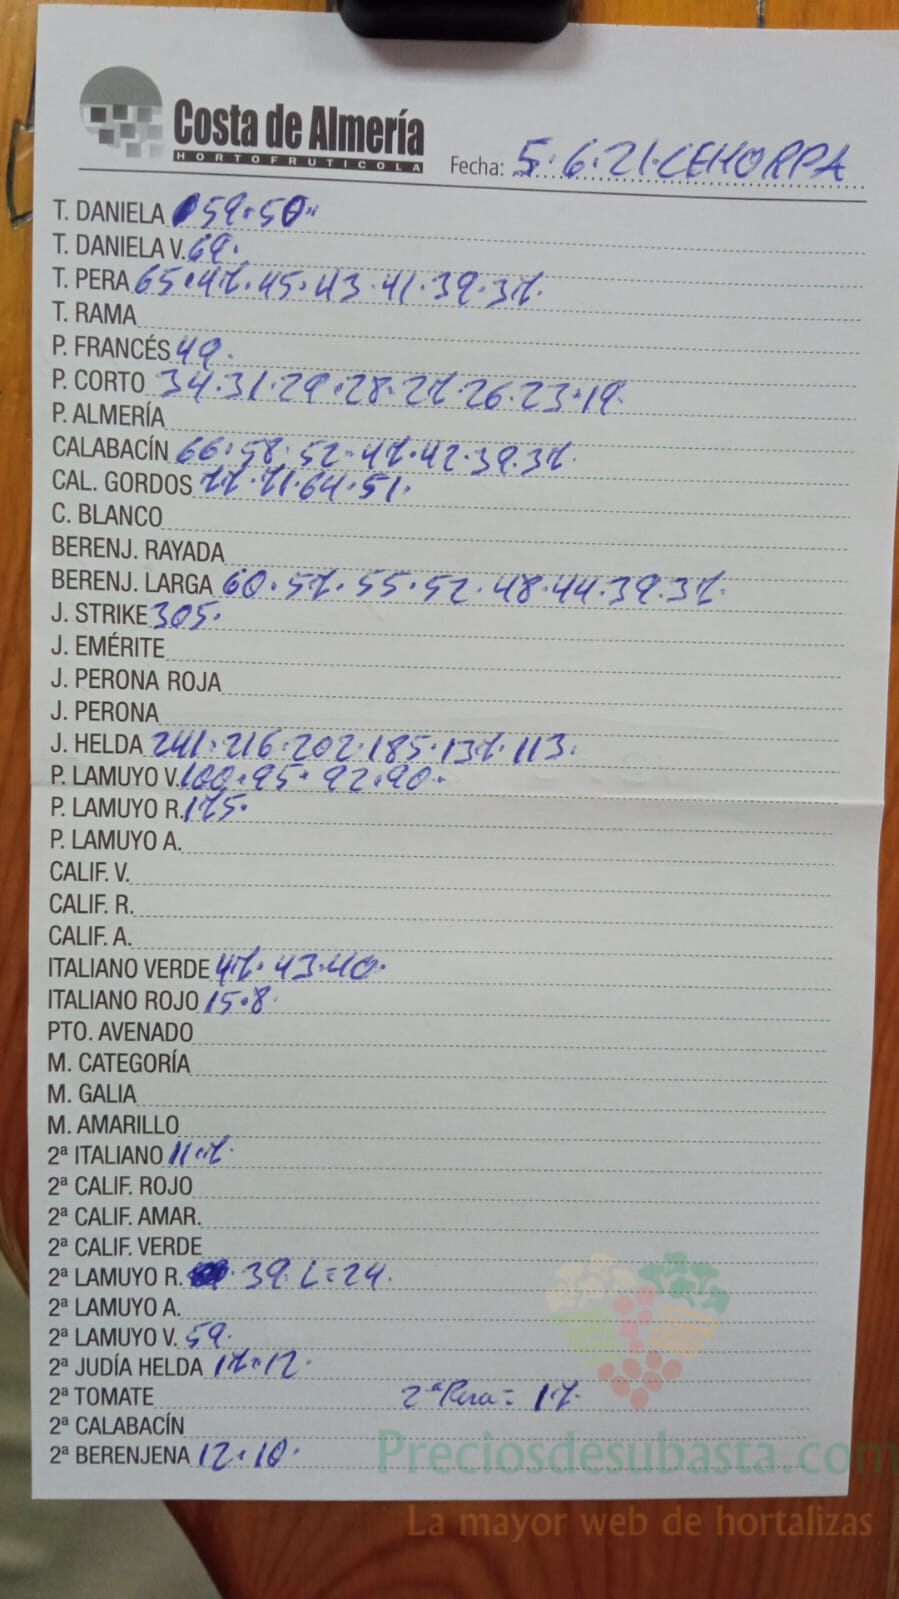 Costa de Almería
HORTOFRUTICOLA
Fecha: 5.6.21.CEHORPA
T. DANIELA 59.50"
T. DANIELA V. 69.
T. PERA 65.47.45.43.41.39.37.
T. RAMA
P. FRANCÉS 49.
P. CORTO 34.31.29.28.27.26.23.19.
P. ALMERÍA
CALABACÍN 66.58.52.47.42.39.37.
CAL. GORDOS 77.71.64.51.
C. BLANCO
BERENJ. RAYADA
BERENJ. LARGA 60.57.55.52.48.44.39.37.
J. STRIKE 305.
J. EMÉRITE
J. PERONA ROJA
J. PERONA
J. HELDA 241.216.202.185.137.113.
P. LAMUYO V. 100.95.92.90.
P. LAMUYO R. 175.
P. LAMUYO A.
CALIF. V.
CALIF. R.
CALIF. A.
ITALIANO VERDE 47.43.40.
ITALIANO ROJO 15.8.
PTO. AVENADO
M. CATEGORÍA
M. GALIA
M. AMARILLO
2ª ITALIANO 11.7.
2ª CALIF. ROJO
2ª CALIF. AMAR.
2ª CALIF. VERDE
2ª LAMUYO R. . 39. L=24.
2ª LAMUYO A.
2ª LAMUYO V. 59.
2ª JUDÍA HELDA 17.12.
2ª TOMATE 2ª Pera = 17.
2ª CALABACÍN
2ª BERENJENA 12.10.
Preciosdesubasta.com
La mayor web de hortalizas